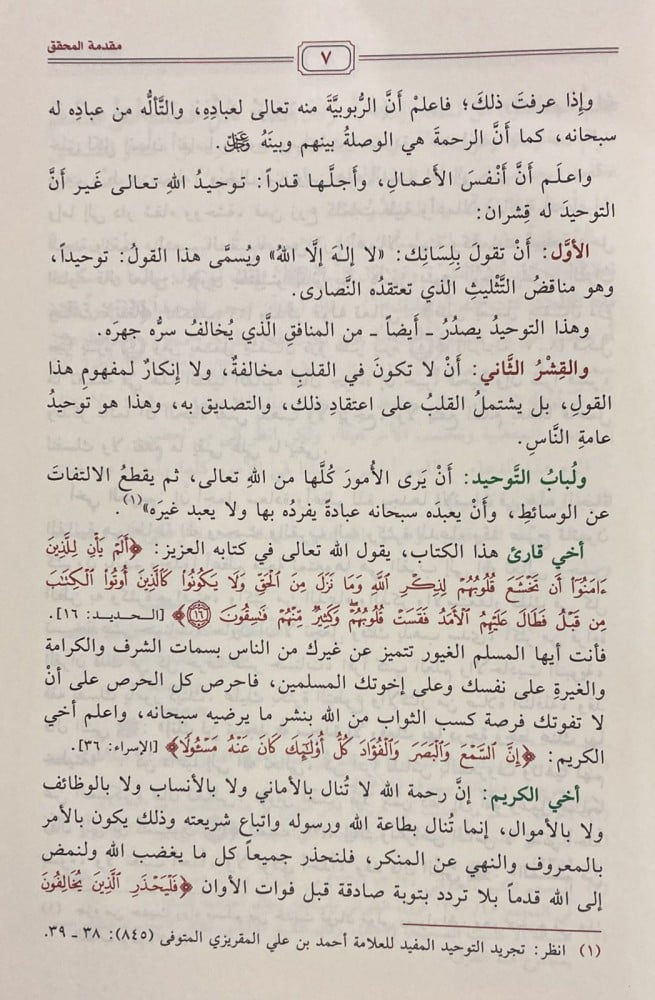 مقدمة المحقق
٧
وإذا عرفتَ ذلكَ؛ فاعلمْ أَنَّ الرُّبوبيَّةَ منه تعالى لعبادِهِ، والتَّألُّه من عباده له
سبحانه، كما أَنَّ الرحمةَ هي الوصلةُ بينهم وبينَهُ ﷿.
واعلَم أَنَّ أَنْفسَ الأَعمـالِ، وأَجلَّـها قدراً: توحيـدُ اللهِ تعـالى غَيـر أَنَّ
التوحيدَ له قِشران:
الأوَّل: أَنْ تقولَ بِلِسَانِك: «لا إلـٰهَ إلَّا اللهُ» ويُسمَّى هذا القولُ: توحيداً،
وهو مناقضُ التَّثليثِ الذي تعتقدُه النَّصارى.
وهذا التوحيدُ يصدُرُ ـ أَيضاً ـ من المنافقِ الَّذي يُخالفُ سرُّه جهرَه.
والقِشْرُ الثَّاني: أَنْ لا تكونَ في القلبِ مخالفةٌ، ولا إِنكارٌ لمفهومِ هذا
القولِ، بل يشتملُ القلبُ على اعتقادِ ذلك، والتصديق به، وهذا هو توحيدُ
عامةِ النَّاسِ.
ولُبابُ التَّوحيد: أَنْ يَرى الأُمورَ كُلَّها من اللهِ تعالى، ثم يقطعُ الالتفاتَ
عن الوسائطِ، وأَنْ يعبدَه سبحانه عبادةً يفردُه بها ولا يعبد غيرَه»(١).
أخي قارئ هذا الكتاب، يقول الله تعالى في كتابه العزيز: ﴿أَلَمْ يَأْنِ لِلَّذِينَ
ءَامَنُوٓا۟ أَن تَخْشَعَ قُلُوبُهُمْ لِذِكْرِ ٱللَّهِ وَمَا نَزَلَ مِنَ ٱلْحَقِّ وَلَا يَكُونُوا۟ كَٱلَّذِينَ أُوتُوا۟ ٱلْكِتَٰبَ
مِن قَبْلُ فَطَالَ عَلَيْهِمُ ٱلْأَمَدُ فَقَسَتْ قُلُوبُهُمْ ۖ وَكَثِيرٌ مِّنْهُمْ فَٰسِقُونَ ۝١٦﴾ [الـحديد: ١٦].
فأنت أيها المسلم الغيور تتميز عن غيرك من الناس بسمات الشرف والكرامة
والغيرةِ على نفسك وعلى إخوتك المسلمين، فاحرص كل الحرص على أنْ
لا تفوتك فرصة كسب الثواب من الله بنشر ما يرضيه سبحانه، واعلم أخي
الكريم: ﴿إِنَّ ٱلسَّمْعَ وَٱلْبَصَرَ وَٱلْفُؤَادَ كُلُّ أُو۟لَٰٓئِكَ كَانَ عَنْهُ مَسْـُٔولًا﴾ [الإسراء: ٣٦].
أخي الكريم: إنَّ رحمة الله لا تُنال بالأماني ولا بالأنساب ولا بالوظائف
ولا بالأموال، إنما تُنال بطاعة الله ورسوله واتباع شريعته وذلك يكون بالأمر
بالمعروف والنهي عن المنكر، فلنحذر جميعاً كل ما يغضب الله ولنمض
إلى الله قدماً بلا تردد بتوبة صادقة قبل فوات الأوان ﴿فَلْيَحْذَرِ ٱلَّذِينَ يُخَالِفُونَ
(١) انظر: تجريد التوحيد المفيد للعلامة أحمد بن علي المقريزي المتوفى (٨٤٥): ٣٨ ـ ٣٩.